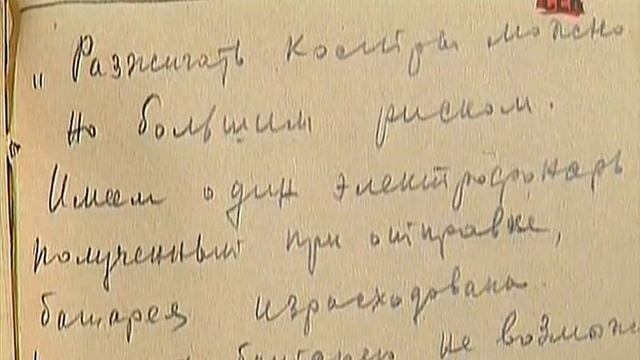 СЕК
„ Разжигать костры можно
но большим риском.
Имеем один электрофонарь
полученный при отправке,
батарея израсходована.
батарею не возможн